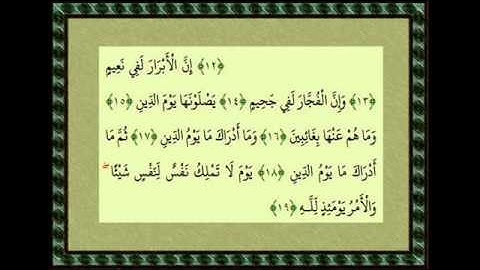 ﴿١٢﴾ إِنَّ الْأَبْرَارَ لَفِي نَعِيمٍ
﴿١٣﴾ وَإِنَّ الْفُجَّارَ لَفِي جَحِيمٍ ﴿١٤﴾ يَصْلَوْنَهَا يَوْمَ الدِّينِ ﴿١٥﴾
وَمَا هُمْ عَنْهَا بِغَائِبِينَ ﴿١٦﴾ وَمَا أَدْرَاكَ مَا يَوْمُ الدِّينِ ﴿١٧﴾ ثُمَّ مَا
أَدْرَاكَ مَا يَوْمُ الدِّينِ ﴿١٨﴾ يَوْمَ لَا تَمْلِكُ نَفْسٌ لِّنَفْسٍ شَيْئًا ۖ
وَالْأَمْرُ يَوْمَئِذٍ لِّلَّـهِ ﴿١٩﴾